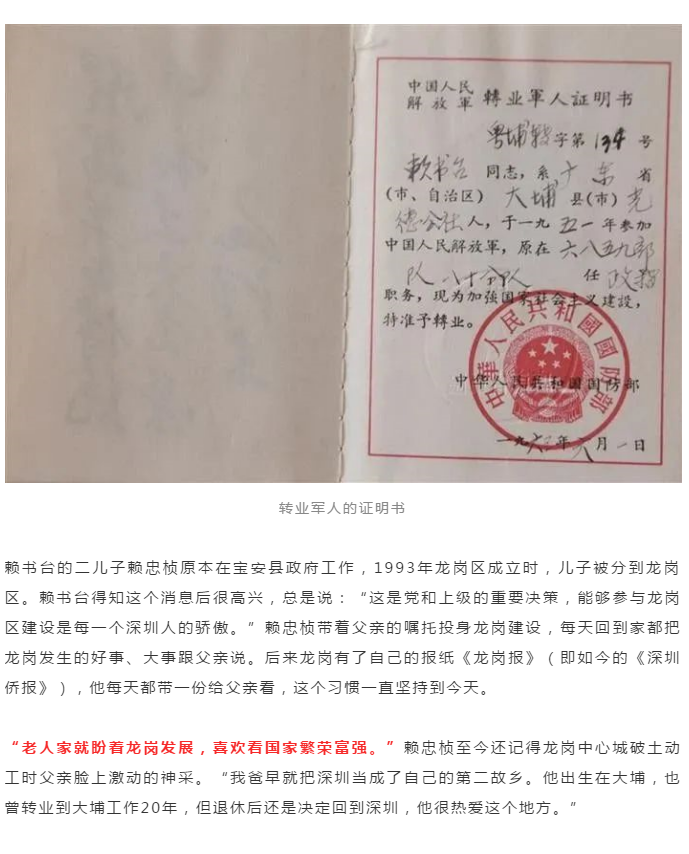 中国人民
解放軍 轉业軍人証明书
粤埔转字第134号
赖书台同志，系广东省
(市、自治区) 大埔县(市)光
德公社人，于一九五一年参加
中国人民解放軍，原在六八五九部
队八十分队 任政指
职务，现为加強国家社会主义建設，
特准予轉业。
中華人民共和國國防部
中华人民共和国国防部
一九六三年六月一日
转业军人的证明书
赖书台的二儿子赖忠桢原本在宝安县政府工作，1993年龙岗区成立时，儿子被分到龙岗
区。赖书台得知这个消息后很高兴，总是说：“这是党和上级的重要决策，能够参与龙岗
区建设是每一个深圳人的骄傲。”赖忠桢带着父亲的嘱托投身龙岗建设，每天回到家都把
龙岗发生的好事、大事跟父亲说。后来龙岗有了自己的报纸《龙岗报》（即如今的《深圳
侨报》），他每天都带一份给父亲看，这个习惯一直坚持到今天。
“老人家就盼着龙岗发展，喜欢看国家繁荣富强。”赖忠桢至今还记得龙岗中心城破土动
工时父亲脸上激动的神采。“我爸早就把深圳当成了自己的第二故乡。他出生在大埔，也
曾转业到大埔工作20年，但退休后还是决定回到深圳，他很热爱这个地方。”